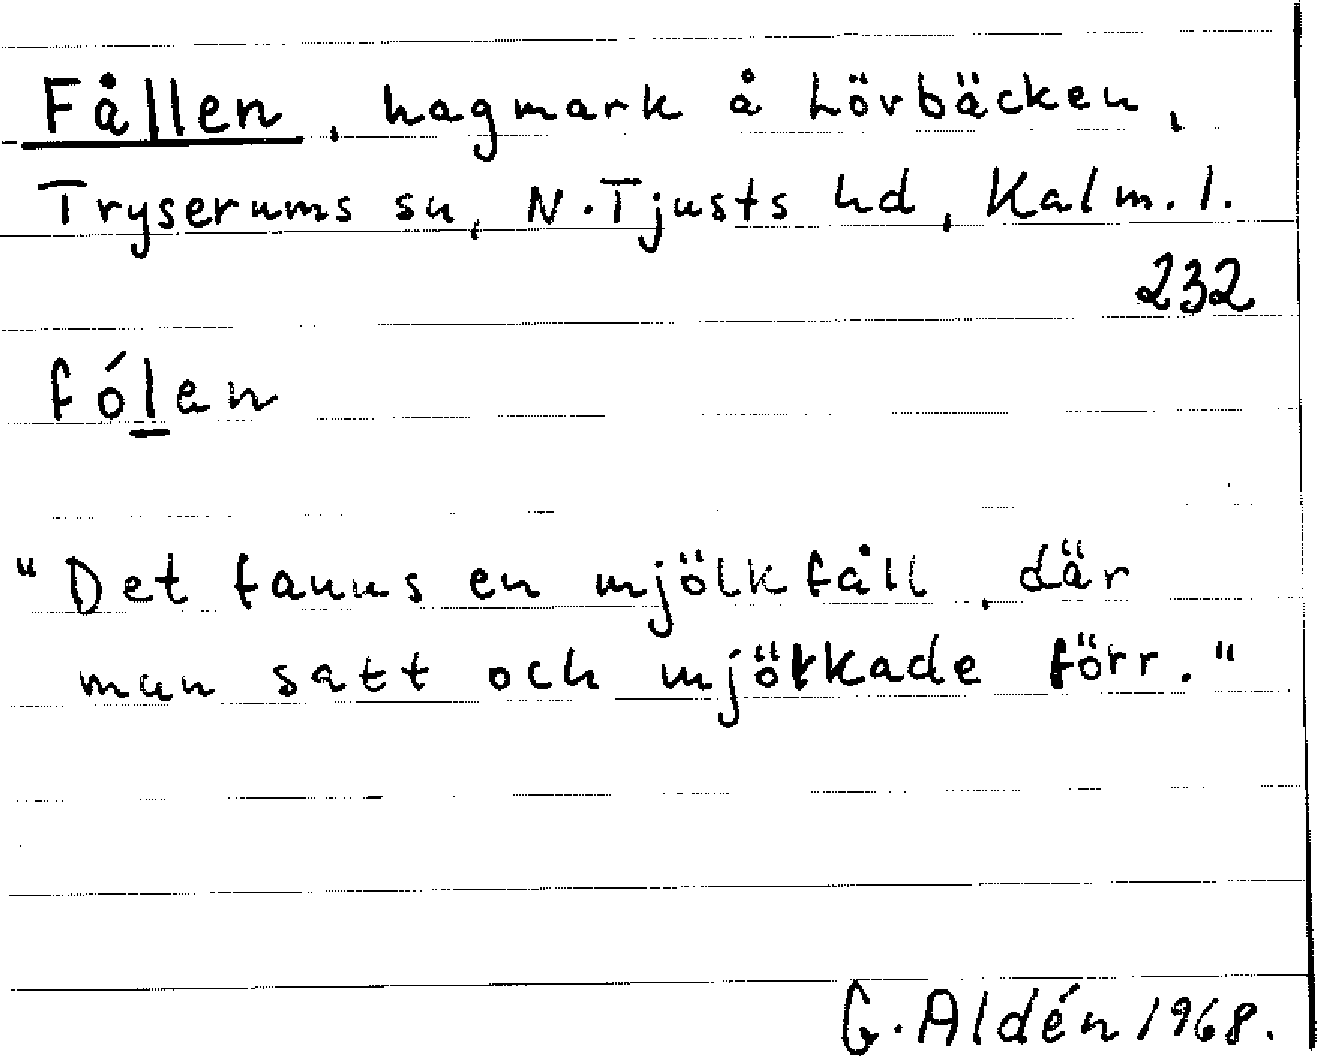 Fållen, hagmark å Lövbäcken,
Tryserums sn, N. Tjusts hd, Kalm. l.
232
fólan
"Det fanns en mjölkfåll, där
man satt och mjölkade förr."
G. Aldén 1968.